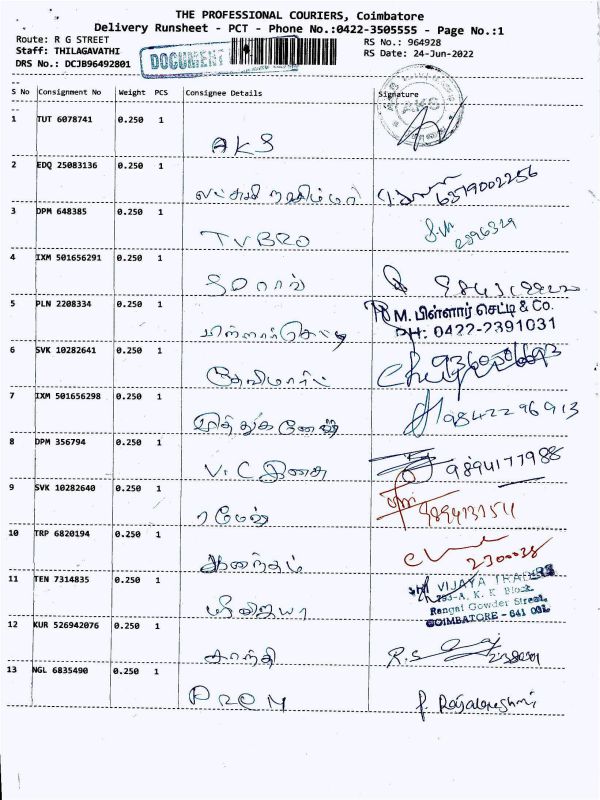 THE PROFESSIONAL COURIERS, Coimbatore
Delivery Runsheet - PCT - Phone No.:0422-3505555 - Page No.:1
Route: R G STREET
RS No.: 964928
Staff: THILAGAVATHI
RS Date: 24-Jun-2022
DRS No.: DCJB96492801
DOCUMENT
S No Consignment No Weight PCS Consignee Details Signature
1 TUT 6078741 0.250 1
AKS
AKS
2 EDQ 25083136 0.250 1
6379002256
3 DPM 648385 0.250 1
TVBRO
2396329
4 IXM 501656291 0.250 1
5 PLN 2208334 0.250 1
M. பிள்ளார் செட்டி & Co.
PH: 0422-2391031
6 SVK 10282641 0.250 1
7 IXM 501656298 0.250 1
முத்து கணேஷ் 9842296913
8 DPM 356794 0.250 1
V.C இளசு 9894177988
9 SVK 10282640 0.250 1
ரமேஷ்
10 TRP 6820194 0.250 1
ஆனந்தம்
11 TEN 7314835 0.250 1
VIJAYA TRADERS
253-A, K. K. Block,
Rangai Gowder Street,
COIMBATORE - 641 001.
ஸ்ரீ விஜயா
12 KUR 526942076 0.250 1
காந்தி R.S
13 NGL 6835490 0.250 1
PROM